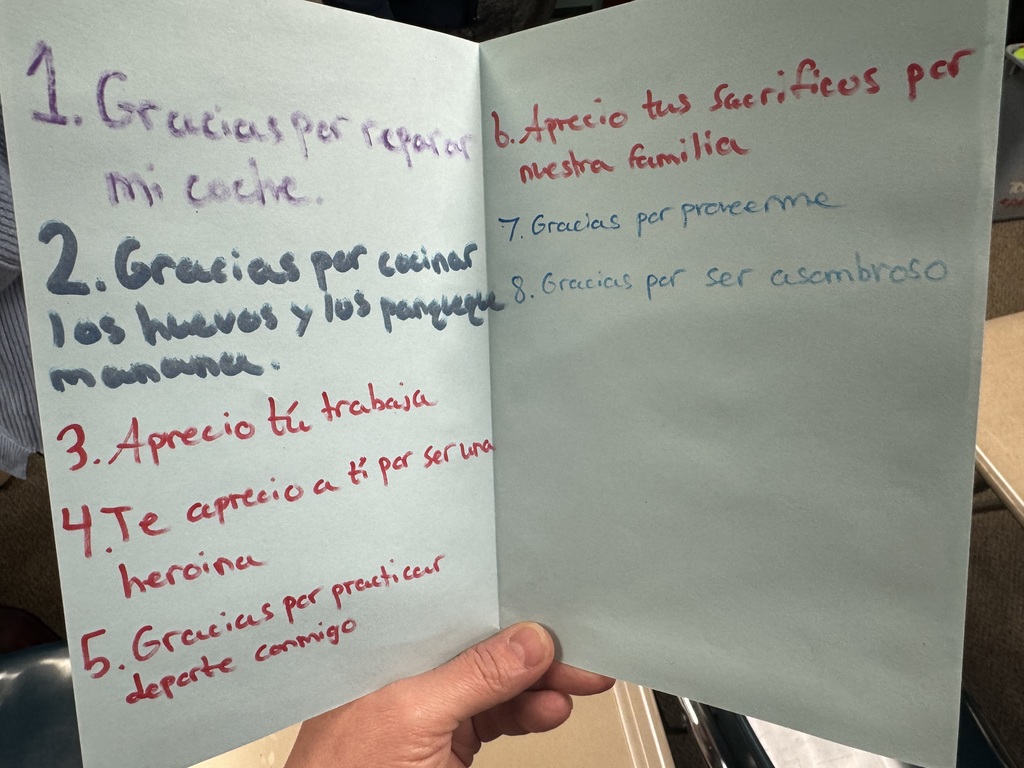 1. Gracias por reparar
mi coche.
2. Gracias por cocinar
los huevos y los panqueque
manana.
3. Aprecio tú trabaja
4. Te aprecio a tí por ser una
heroina
5. Gracias por practicar
deporte conmigo
6. Aprecio tus sacrificos por
nuestra familia
7. Gracias por proveerme
8. Gracias por ser asombroso